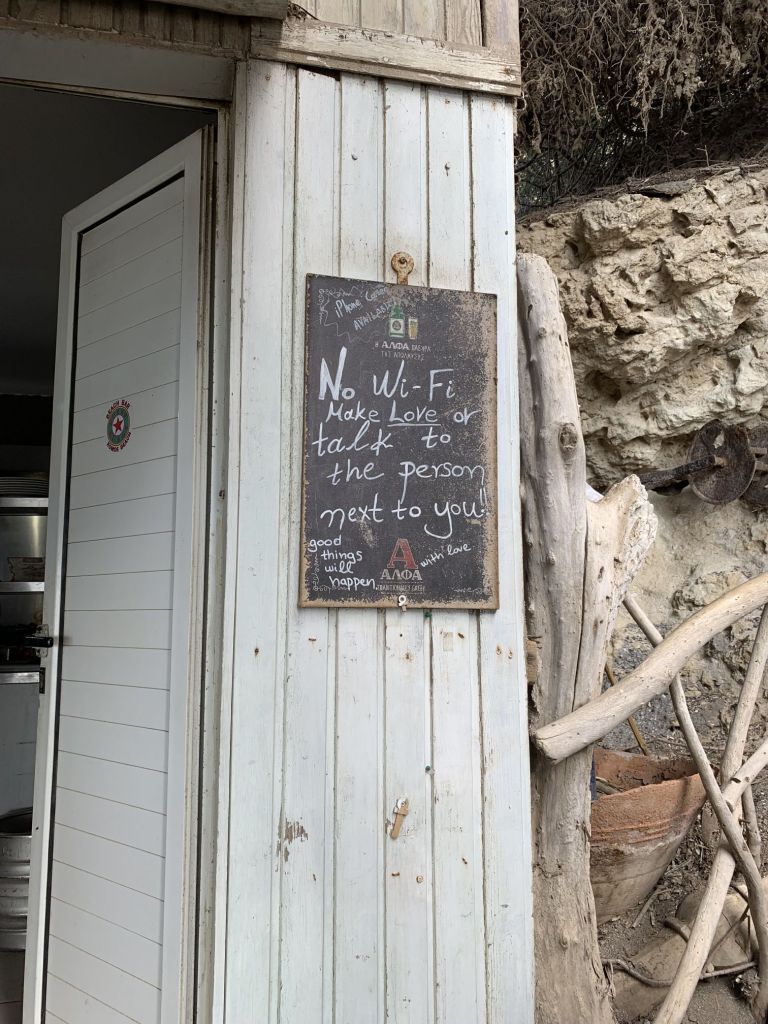 BEACH BAR
iPhone
AVAILABLE
Η ΑΛΦΑ ΠΛΕΥΡΑ
ΤΗΣ ΑΠΟΛΑΥΣΗΣ
No Wi-Fi
Make Love or
talk to
the person
next to you!!
good
things
will
happen
with love
ΑΛΦΑ